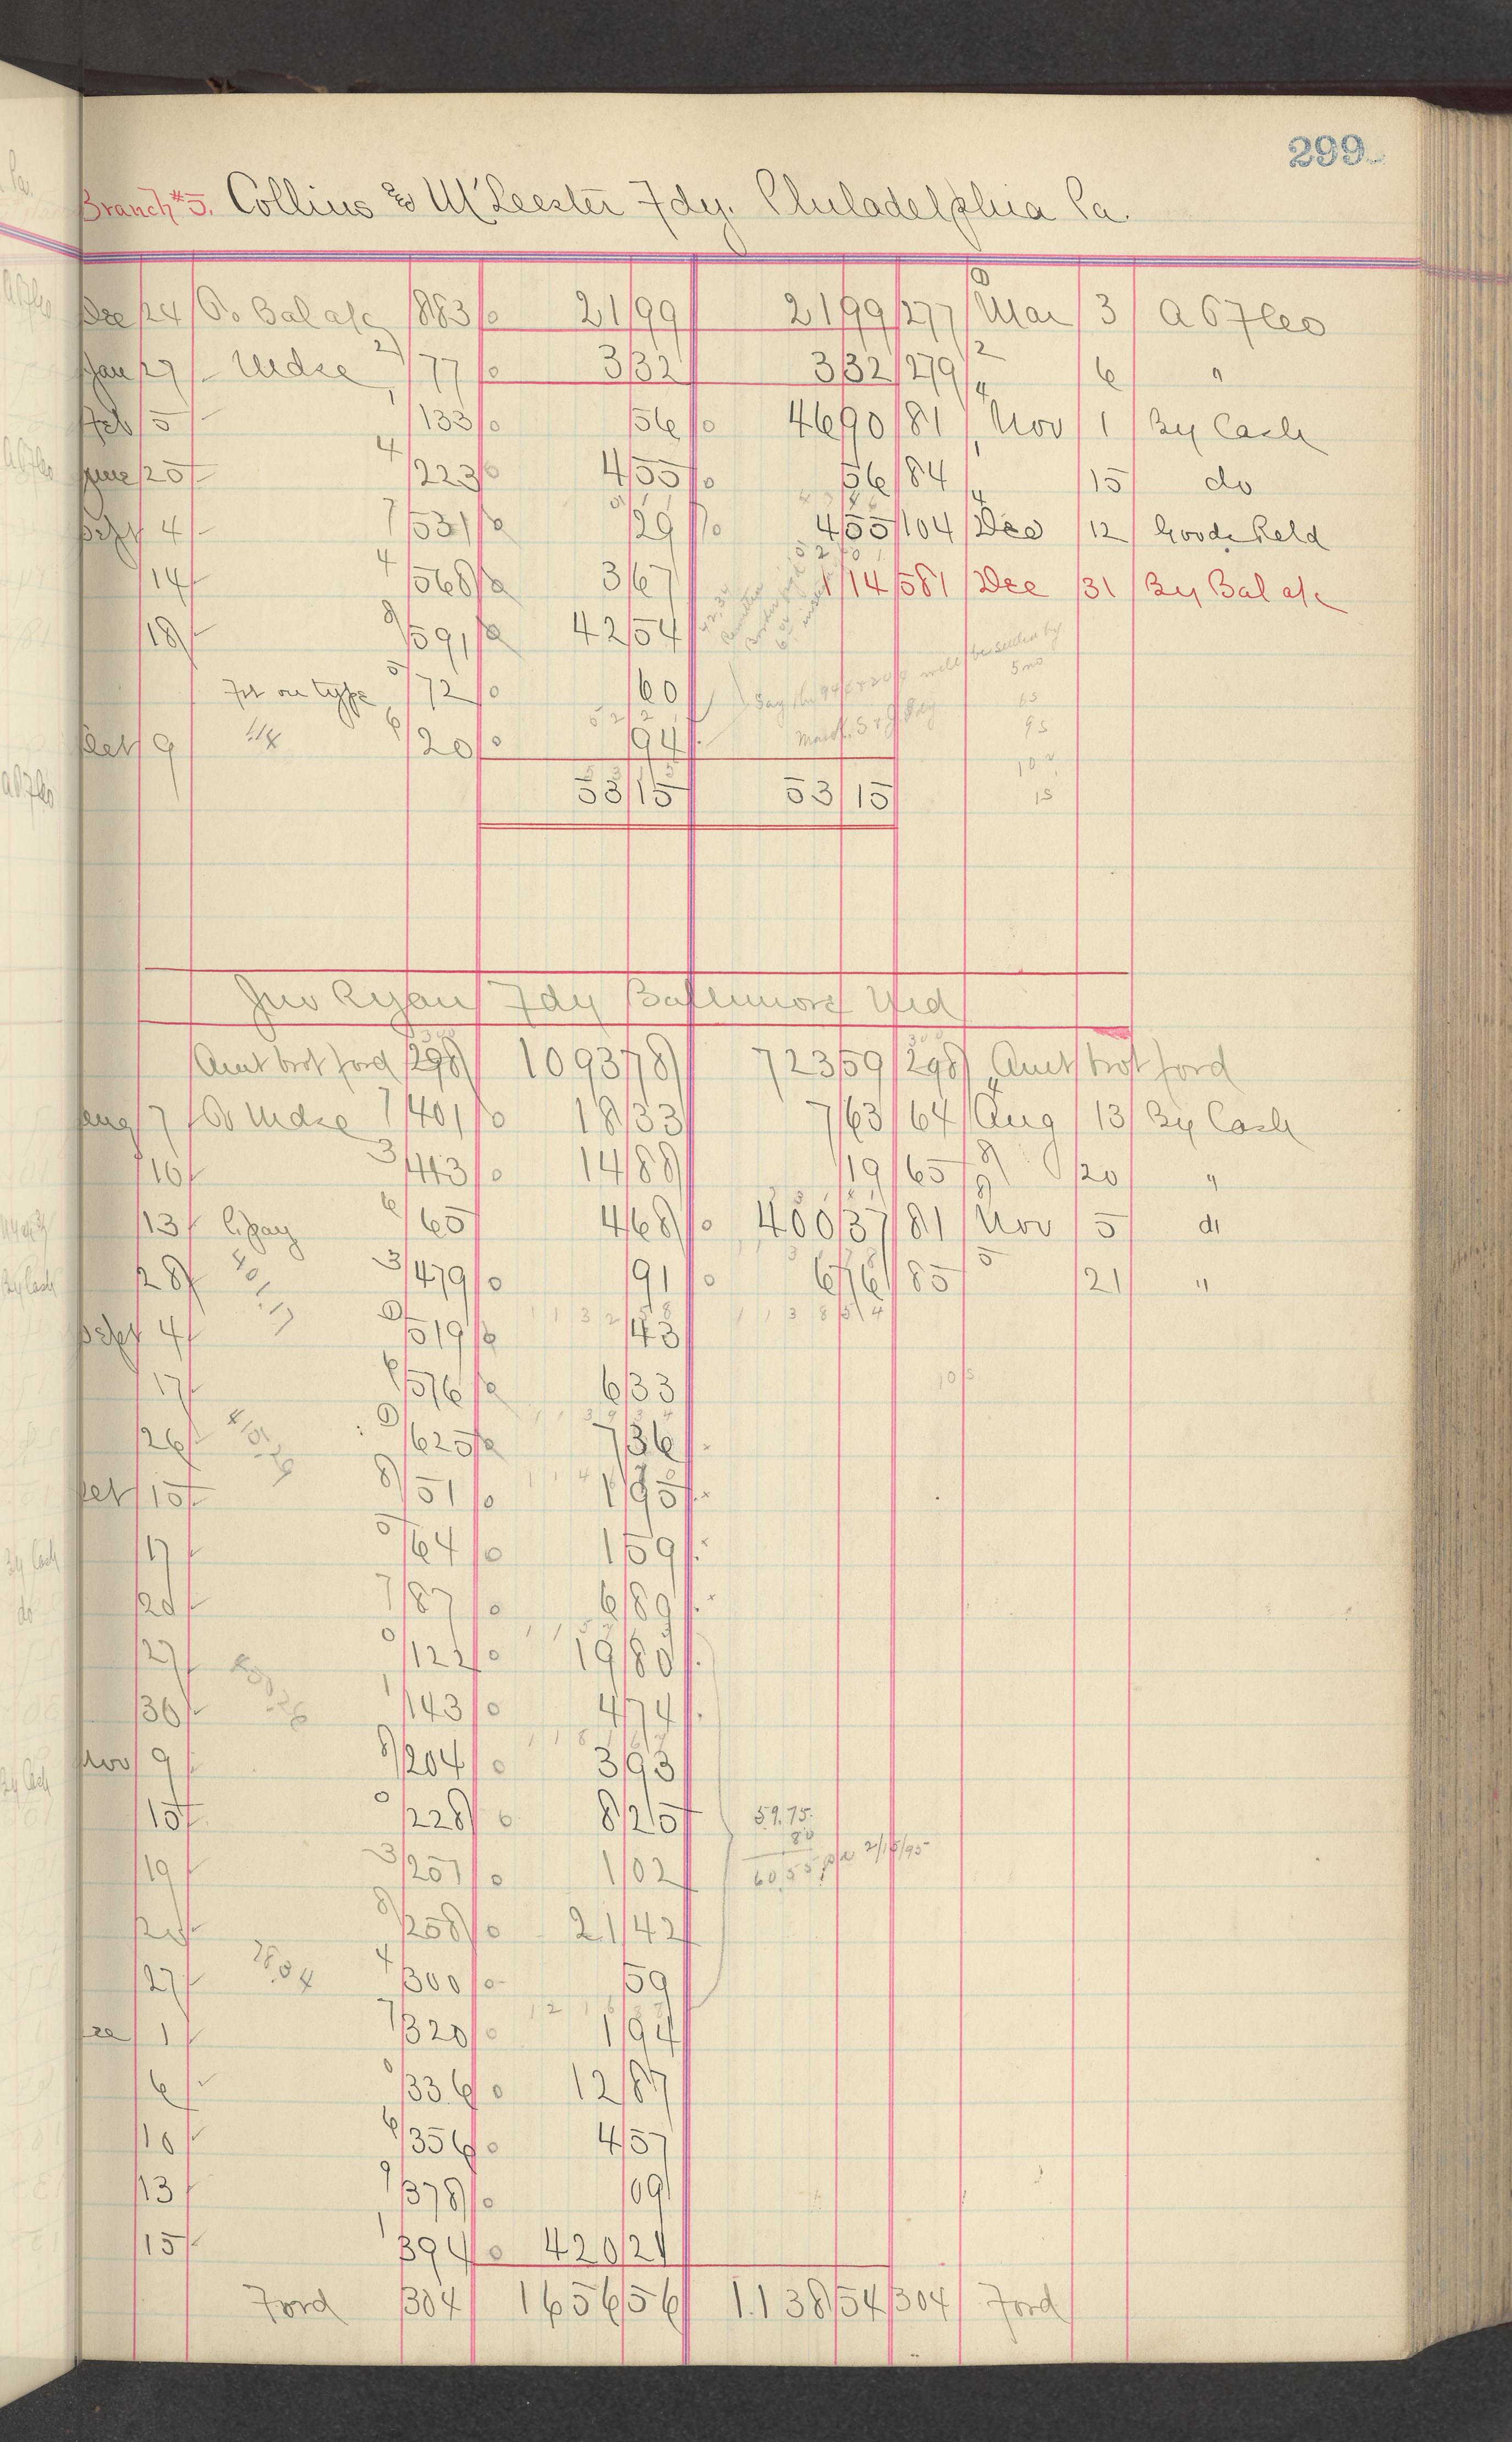 299
Branch #5. Collins & McLeester Fdy. Philadelphia Pa.
Dec 24 To Bal a/c 883 21 99 21 99 277 Mar 3 A T F Co
Jan 27 Mdse 77 3 32 3 32 279 6 "
Feb 5 133 56 46 90 81 Nov 1 By Cash
June 25 223 4 55 56 84 15 do
Sept 4 531 29 4 55 104 Dec 12 Goods Retd
14 568 3 67 1 14 581 Dec 31 By Bal a/c
18 591 42 54
Frt on type 72 60
Oct 9 20 94
53 15 53 15
Jno Ryan Fdy Baltimore Md
Amt brot ford 298 1093 78 723 59 298 Amt brot ford
Aug 7 To Mdse 401 18 33 7 63 64 Aug 13 By Cash
10 443 14 88 19 65 20 "
13 65 4 68 400 37 81 Nov 5 do
28 479 91 6 76 85 21 "
Sept 4 519 43
17 576 6 33
26 625 7 36
Oct 15 51 1 95
17 64 1 59
20 87 6 89
27 122 19 80
30 143 4 74
Nov 9 204 3 93
15 228 8 25
59.75
80
60.55 2/15/95
19 257 1 02
258 21 42
27 300 59
28.04
Dec 1 320 1 94
6 336 12 87
10 356 4 57
13 378 09
15 394 420 21
Ford 304 1656 56 1138 54 304 Ford